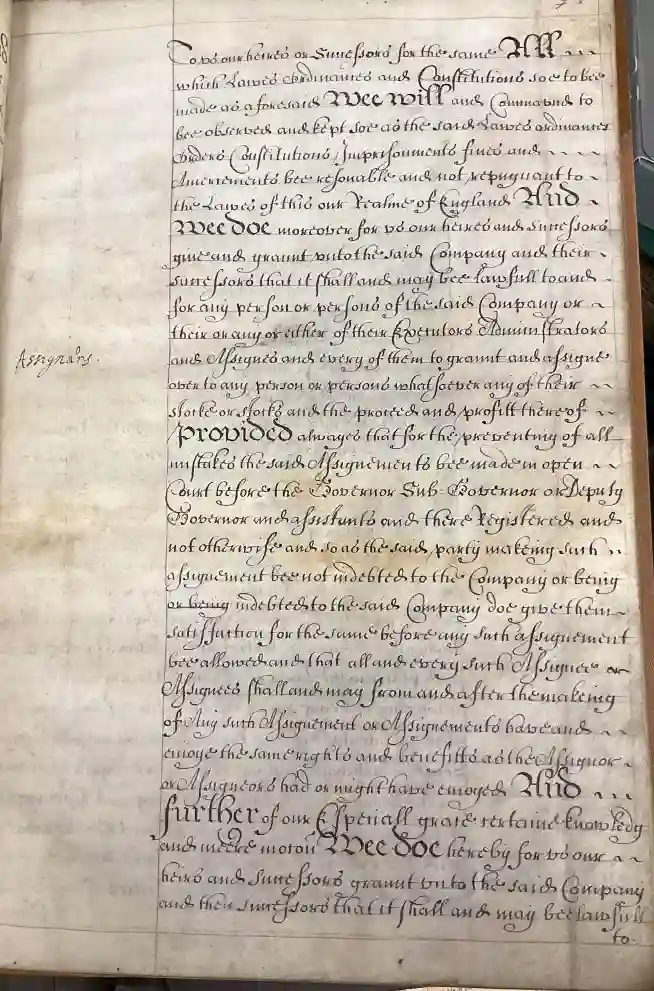 To us our heires or Successors for the same All
which Lawes Ordinances and Constitutions soe to bee
made as aforesaid Wee will and Command to
bee observed and kept soe as the said Lawes ordinances
Orders Constitutions Imprisonments fines and
Amerciements bee resonable and not repugnant to
the Lawes of this our Realme of England And
Wee doe moreover for us our heires and Successors
give and graunt unto the said Company and their
successors that it shall and may bee lawfull to and
for any person or persons of the said Company or
their or any or either of their Executors Administrators
Assignars.
and Assignes and every of them to graunt and assigne
over to any person or persons whatsoever any of their
stocke or stocks and the proceed and profitt there of
Provided alwayes that for the preventing of all
mistakes the said Assignements bee made in open
Court before the Governor Sub-Governor or Deputy
Governor and assistants and there Registered and
not otherwise and so as the said party makeing such
assignement bee not indebted to the Company or being
or being indebted to the said Company doe give them
satisfaction for the same before any such assignement
bee allowed and that all and every such Assignee or
Assignees shall and may from and after the makeing
of Any such Assignement or Assignements have and
enioye the same rights and benefitts as the Assignor
or Assigneors had or might have enioyed And
further of our Especiall grace certaine knowledg
and meere motion Wee doe hereby for us our
heirs and Successors graunt unto the said Company
and their successors that it shall and may bee lawfull
to